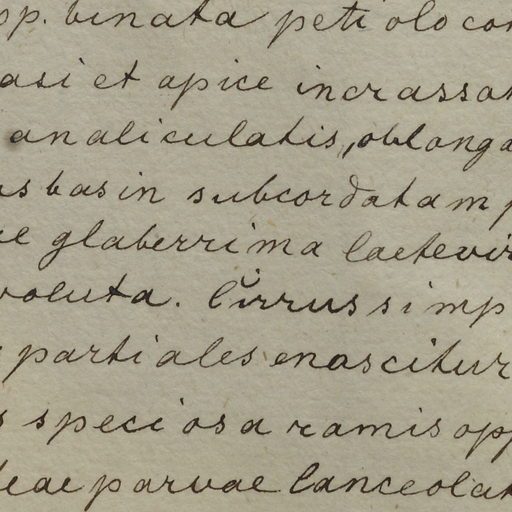 pp. binata petiolo con
asi et apice incrassat
analiculatis, oblonga
us basin subcordatam p
ce glaberrima laetevir
voluta. Cirrus simp
partiales enascitur
s speciosa ramis opp
deae parvae lanceolat